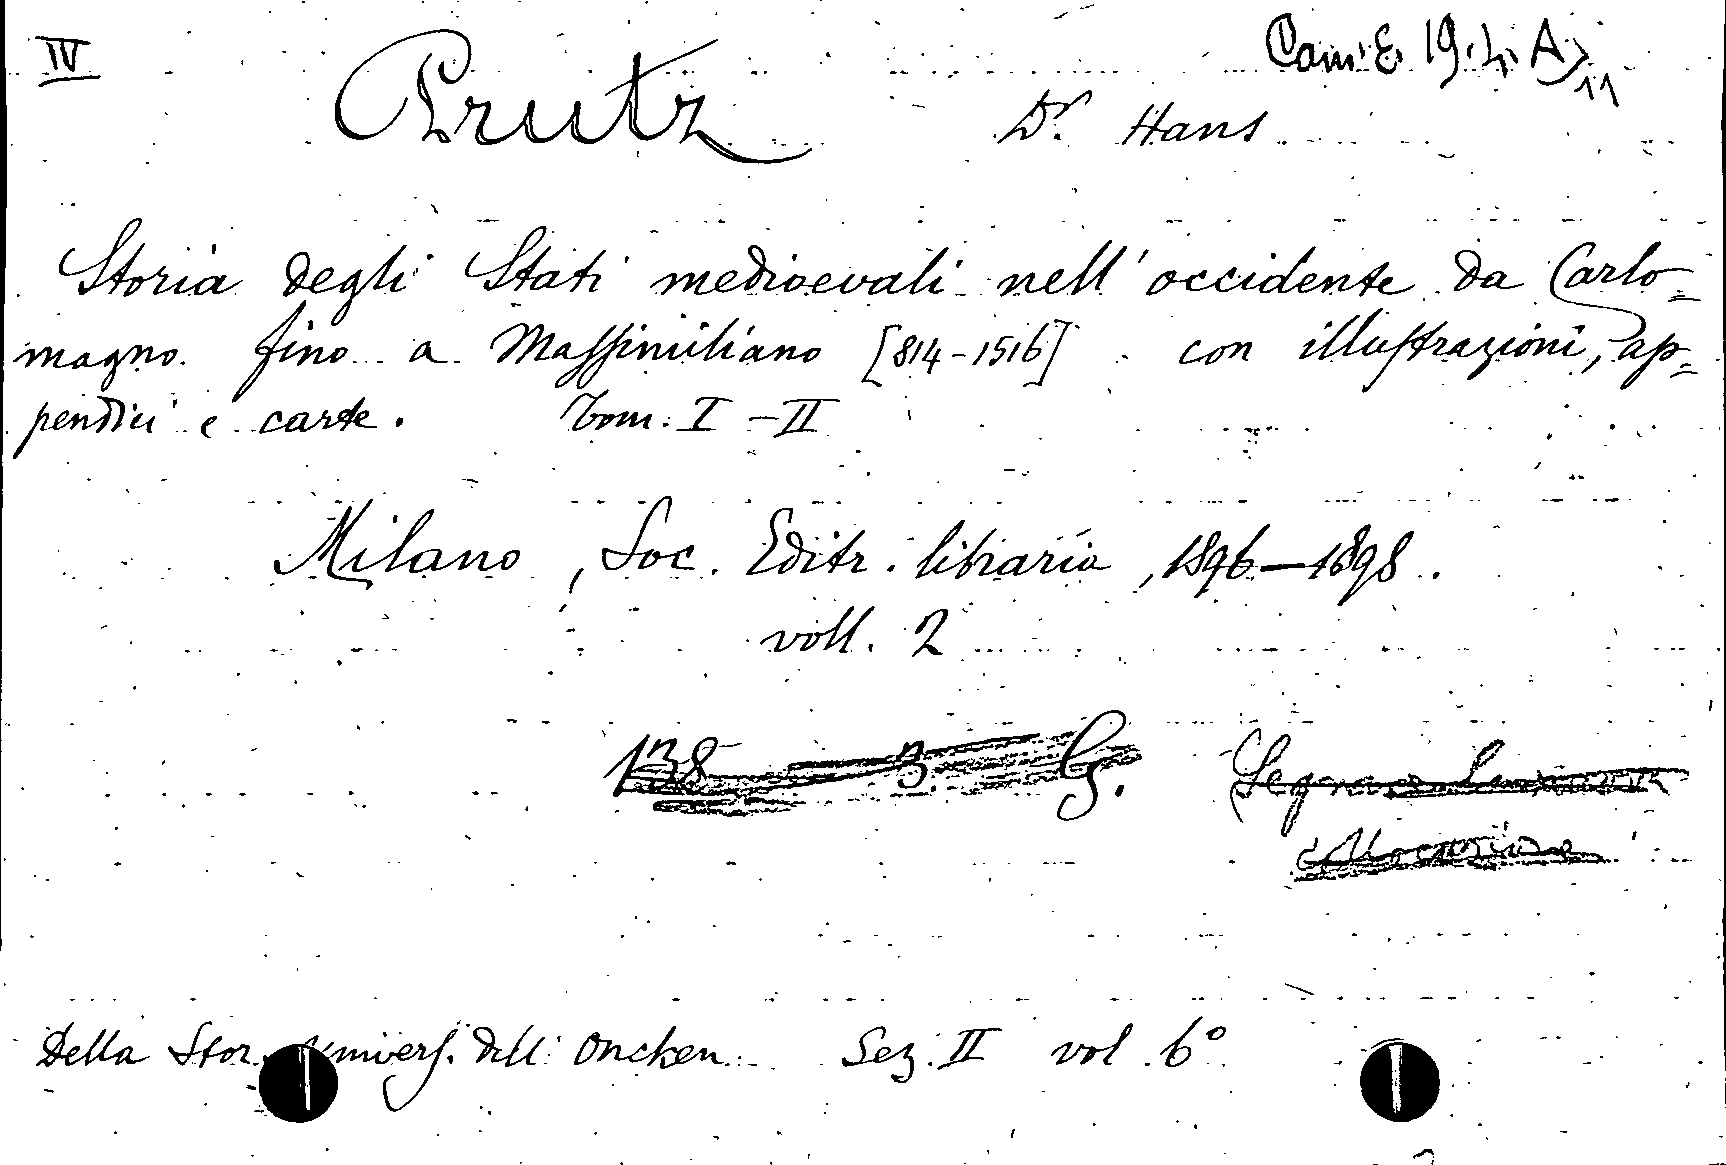 IV
Cam. E. 19. 4. A 11
Prutz Dr. Hans
Storia degli Stati medioevali nell'occidente da Carlo=
magno fino a Massimiliano [814-1516] con illustrazioni, ap=
pendici e carte. Tom. I - II
Milano, Soc. Editr. libraria, 1896-1898.
voll. 2
138 3. G.
Della Stor. Univers. dell' Oncken Sez. II vol 6°